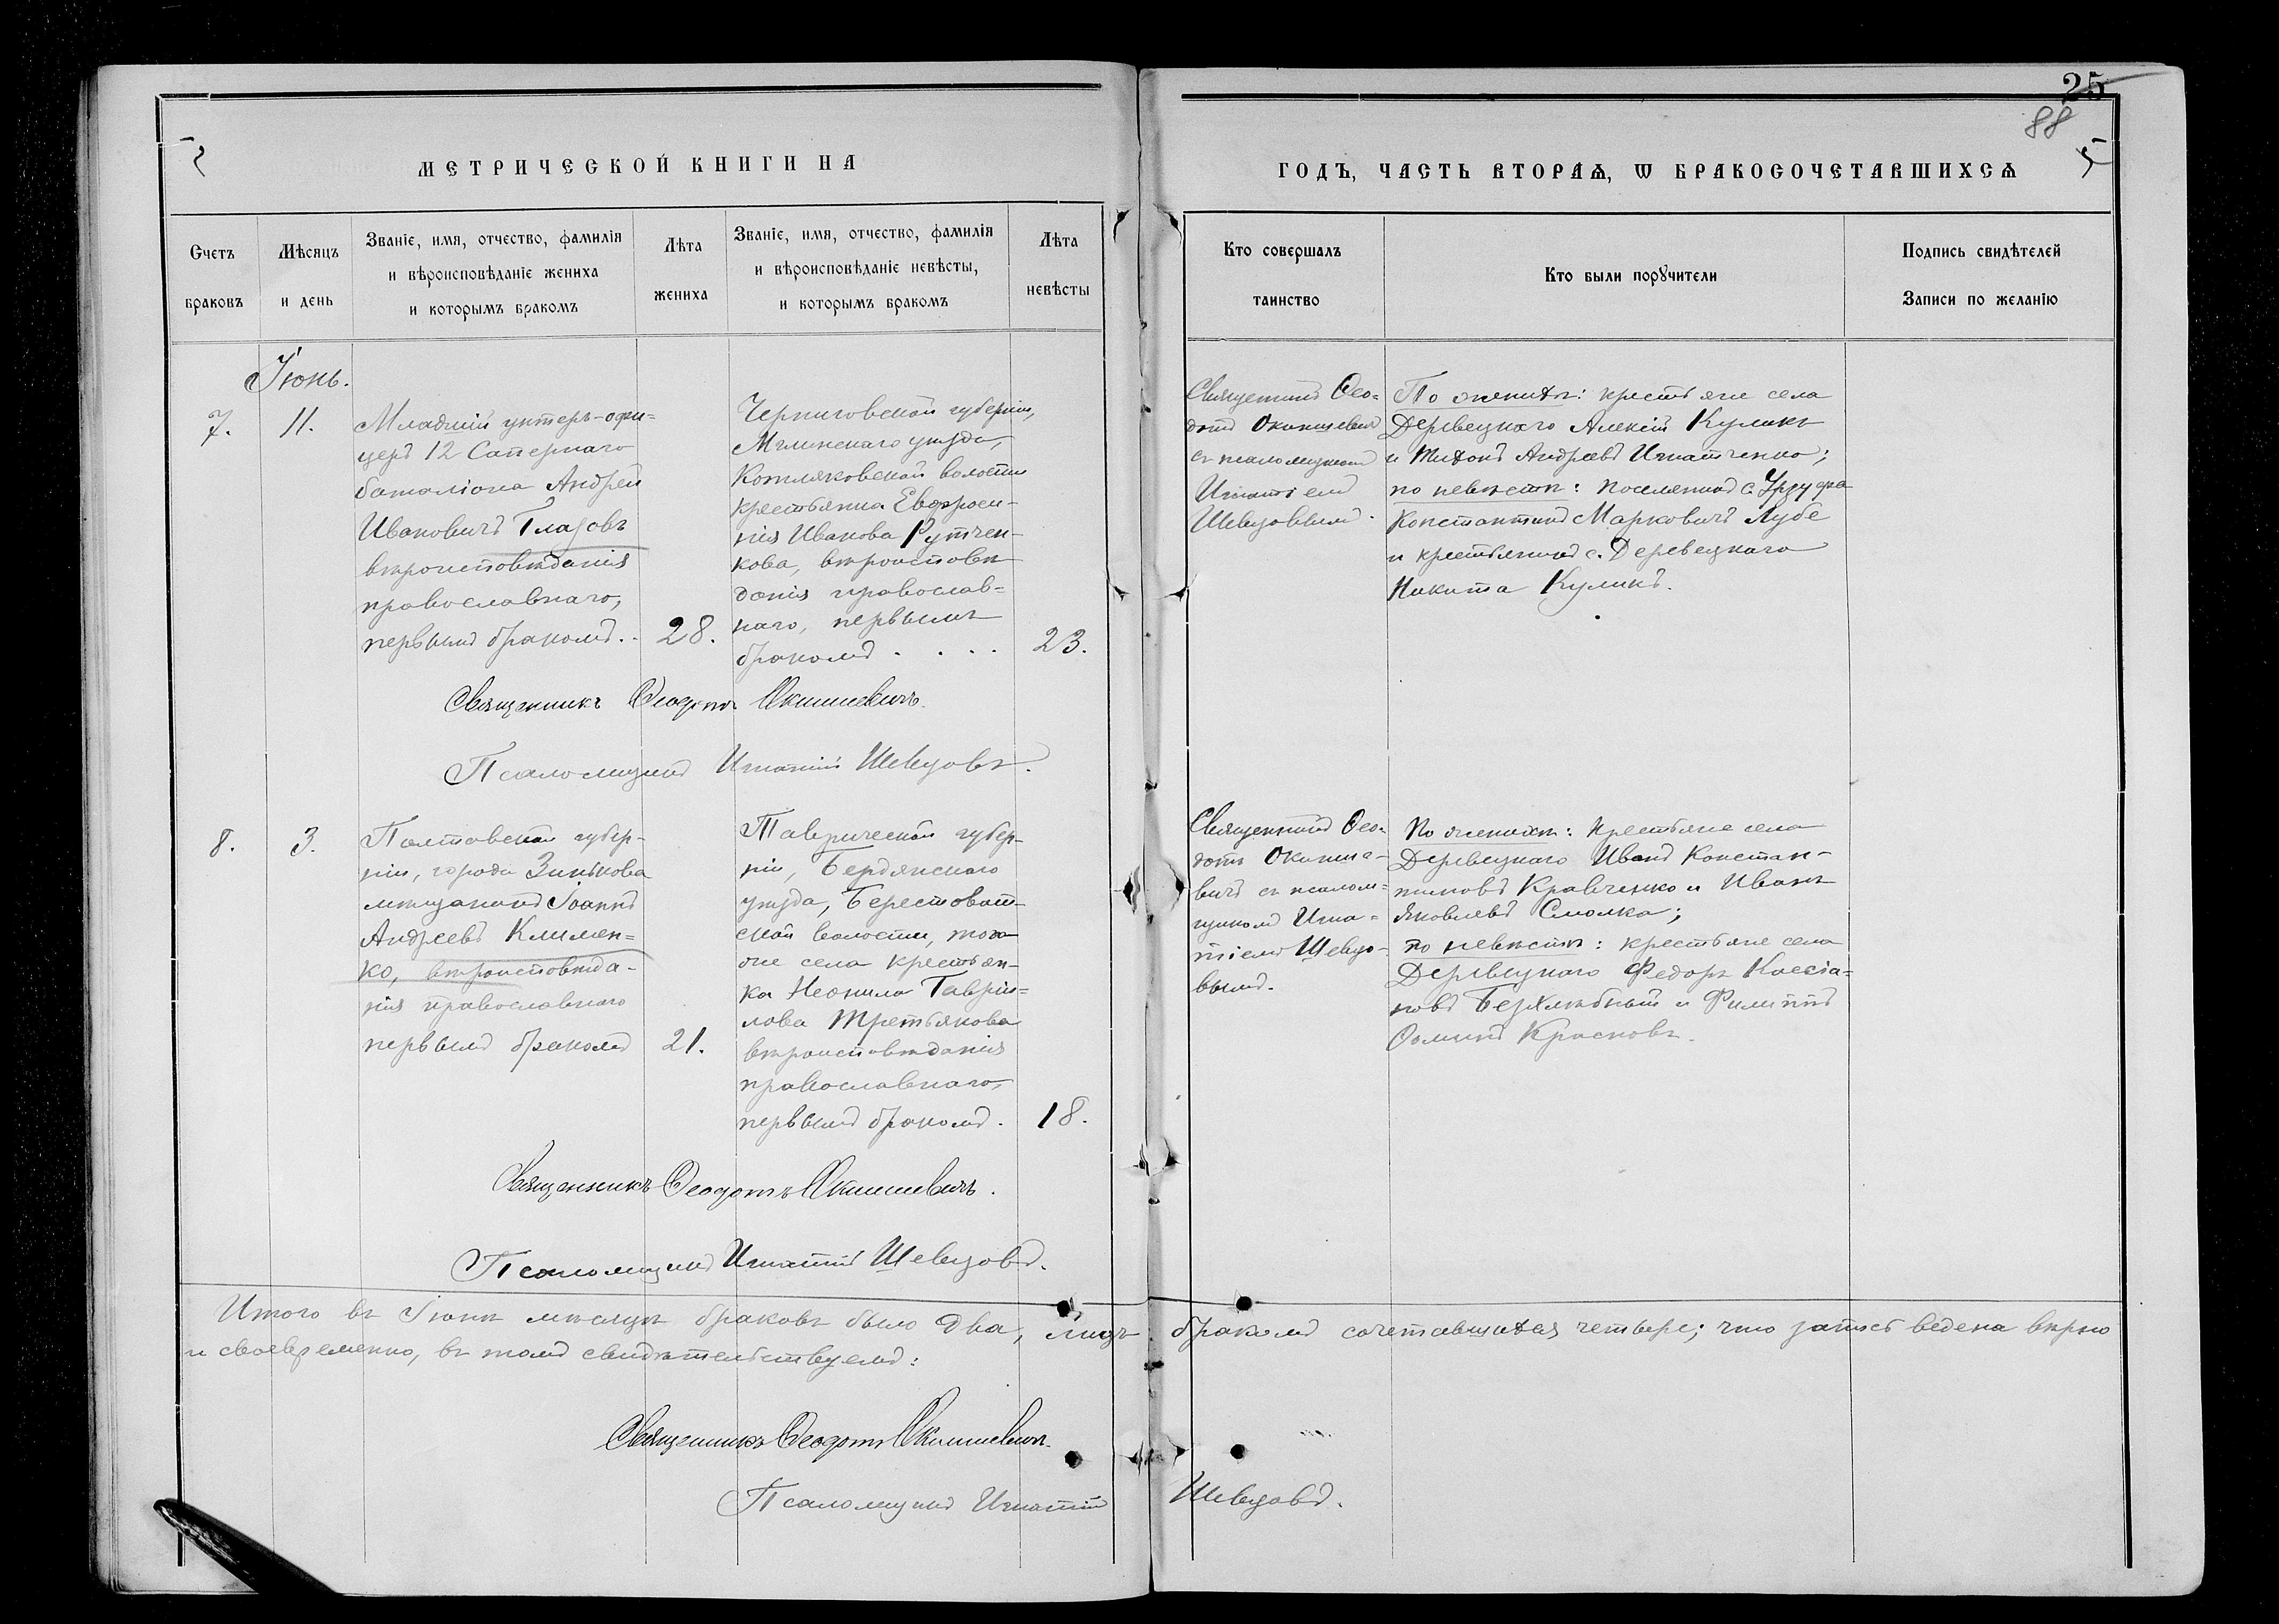 25
88
5
5
МЕТРИЧЕСКОЙ КНИГИ НА
ГОДЪ, ЧАСТЬ ВТОРАѦ, Ѿ БРАКОСОЧЕТАВШИХСѦ
Счетъ
браковъ
Мѣсяцъ
и день
Званіе, имя, отчество, фамилія
и вѣроисповѣданіе жениха
и которымъ бракомъ
Лѣта
жениха
Званіе, имя, отчество, фамилія
и вѣроисповѣданіе невѣсты,
и которымъ бракомъ
Лѣта
невѣсты
Кто совершалъ
таинство
Кто были порꙋчители
Подпись свидѣтелей
Записи по желанію
Іюнь.
7.
11.
Младшій унтеръ-офи=
церъ 12 Сапернаго
баталіона Андрей
Ивановичъ Глазовъ
вѣроисповѣданія
православнаго,
первымъ бракомъ..
28.
Черниговской губерніи,
Мглинскаго уѣзда,
Котляковской волости
крестьянка Евфроси-
нія Иванова Рутчен-
кова, вѣроисповѣ
данія православ=
наго, первымъ
бракомъ . . . .
23.
Священникъ Ѳео=
дотъ Окишевичъ
съ псаломщикомъ
Игнатіемъ
Шевцовымъ.
По женихѣ: крестьяне села
Деревецкаго Алексій Куликъ
и Тихонъ Андреевъ Игнатченко;
по невѣстѣ: поселянинъ с. Урзуфа
Константинъ Марковичъ Лубе
и крестьянинъ с. Деревецкаго
Никита Куликъ.
Священникъ Ѳеодотъ Окишевичъ.
Псаломщикъ Игнатій Шевцовъ.
8.
3.
Полтавской губер-
ніи, города Зинькова
мѣщанинъ Іоаннъ
Андреевъ Климен=
ко, вѣроисповѣда-
нія православнаго
первымъ бракомъ
21.
Таврической губер-
ніи, Бердянскаго
уѣзда, Берестоват-
ской волости, того
же села крестьян-
ка Неонила Гаврии=
лова Третьякова
вѣроисповѣданія
православнаго,
первымъ бракомъ.
18.
Священникъ Ѳео-
дотъ Окише-
вичъ съ псалом=
щикомъ Игна=
тіемъ Шевцо-
вымъ.
По женихѣ: крестьяне села
Деревецкаго Иванъ Констан-
тиновъ Кравченко и Иванъ
Яковлевъ Смолка;
по невѣстѣ: крестьяне села
Деревецкаго Федоръ Кассіа=
новъ Безхлѣбный и Филиппъ
Ѳоминъ Красновъ.
Священникъ Ѳеодотъ Окишевичъ.
Псаломщикъ Игнатій Шевцовъ.
Итого въ Іюнѣ мѣсяцѣ браковъ было два, лицъ бракомъ сочетавшихся четверо; что запись ведена вѣрно
и своевременно, въ томъ свидѣтельствуемъ:
Священникъ Ѳеодотъ Окишевичъ.
Псаломщикъ Игнатій Шевцовъ.